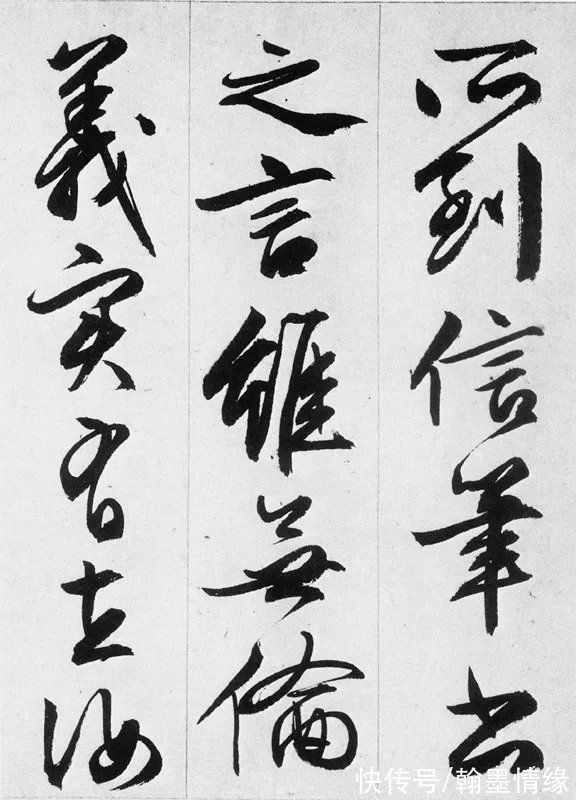 所到信筆書
之言雖無倫
義實有在汝
快传号/翰墨情缘